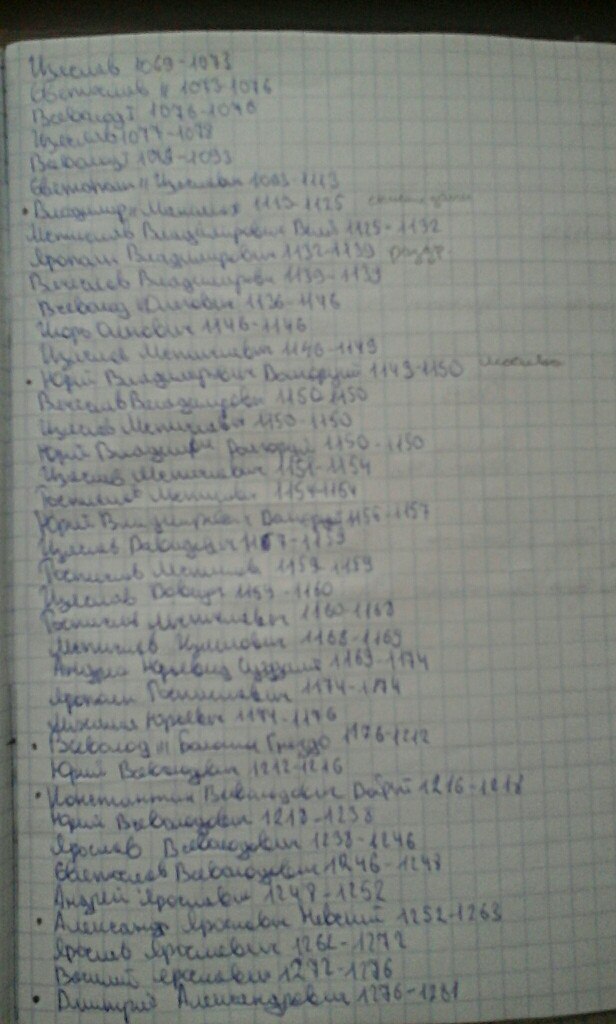 Изяслав 1069-1073
Святослав II 1073-1076
Всеволод I 1076-1078
Изяслав 1077-1078
Всеволод I 1078-1093
Святополк II Изяславич 1093-1113
• Владимир II Мономах 1113-1125
Мстислав Владимирович Вел 1125-1132
Ярополк Владимирович 1132-1139 раздр.
Вячеслав Владимирович 1139-1139
Всеволод Олегович 1136-1146
Игорь Олегович 1146-1146
Изяслав Мстиславич 1146-1149
• Юрий Владимирович Долгорукий 1149-1150 Москва
Вячеслав Владимирович 1150-1150
Изяслав Мстиславич 1150-1150
Юрий Владимир Долгорукий 1150-1150
Изяслав Мстиславич 1151-1154
Ростислав Мстислав 1154-1154
Юрий Владимирович Долгорук 1155-1157
Изяслав Давидович 1157-1159
Ростислав Мстислав 1159-1159
Изяслав Давид 1159-1160
Ростислав Мстиславич 1160-1168
Мстислав Изяславович 1168-1169
Андрей Юрьевич 1169-1174
Ярополк Ростиславович 1174-1174
Михаил Юрьевич 1174-1176
• Всеволод III Большое Гнездо 1176-1212
Юрий Всеволодович 1212-1216
• Константин Всеволодович 1216-1218
Юрий Всеволодович 1218-1238
Ярослав Всеволодович 1238-1246
Святослав Всеволодович 1246-1248
Андрей Ярославич 1248-1252
• Александр Ярославич Невский 1252-1263
Ярослав Ярославич 1262-1272
Василий Ярославич 1272-1276
• Дмитрий Александрович 1276-1281